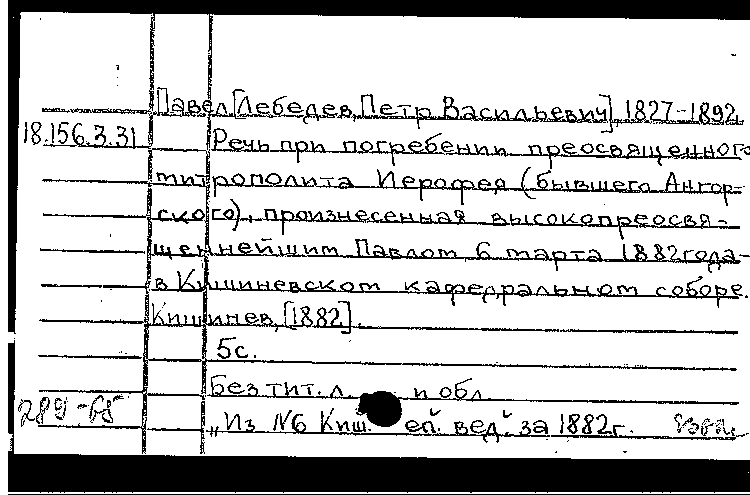 Павел [Лебедев, Петр Васильевич], 1827-1892.
18.156.3.31 Речь при погребении преосвященного
митрополита Иерофея (бывшего Ангор-
ского), произнесенная высокопреосвя-
щеннейшим Павлом, 6 марта 1882 года
в Кишиневском кафедральном соборе.
Кишинев, [1882].
5с.
Без тит. л. и обл.
289-65 „Из №6 Киш. еп. вед." за 1882г.